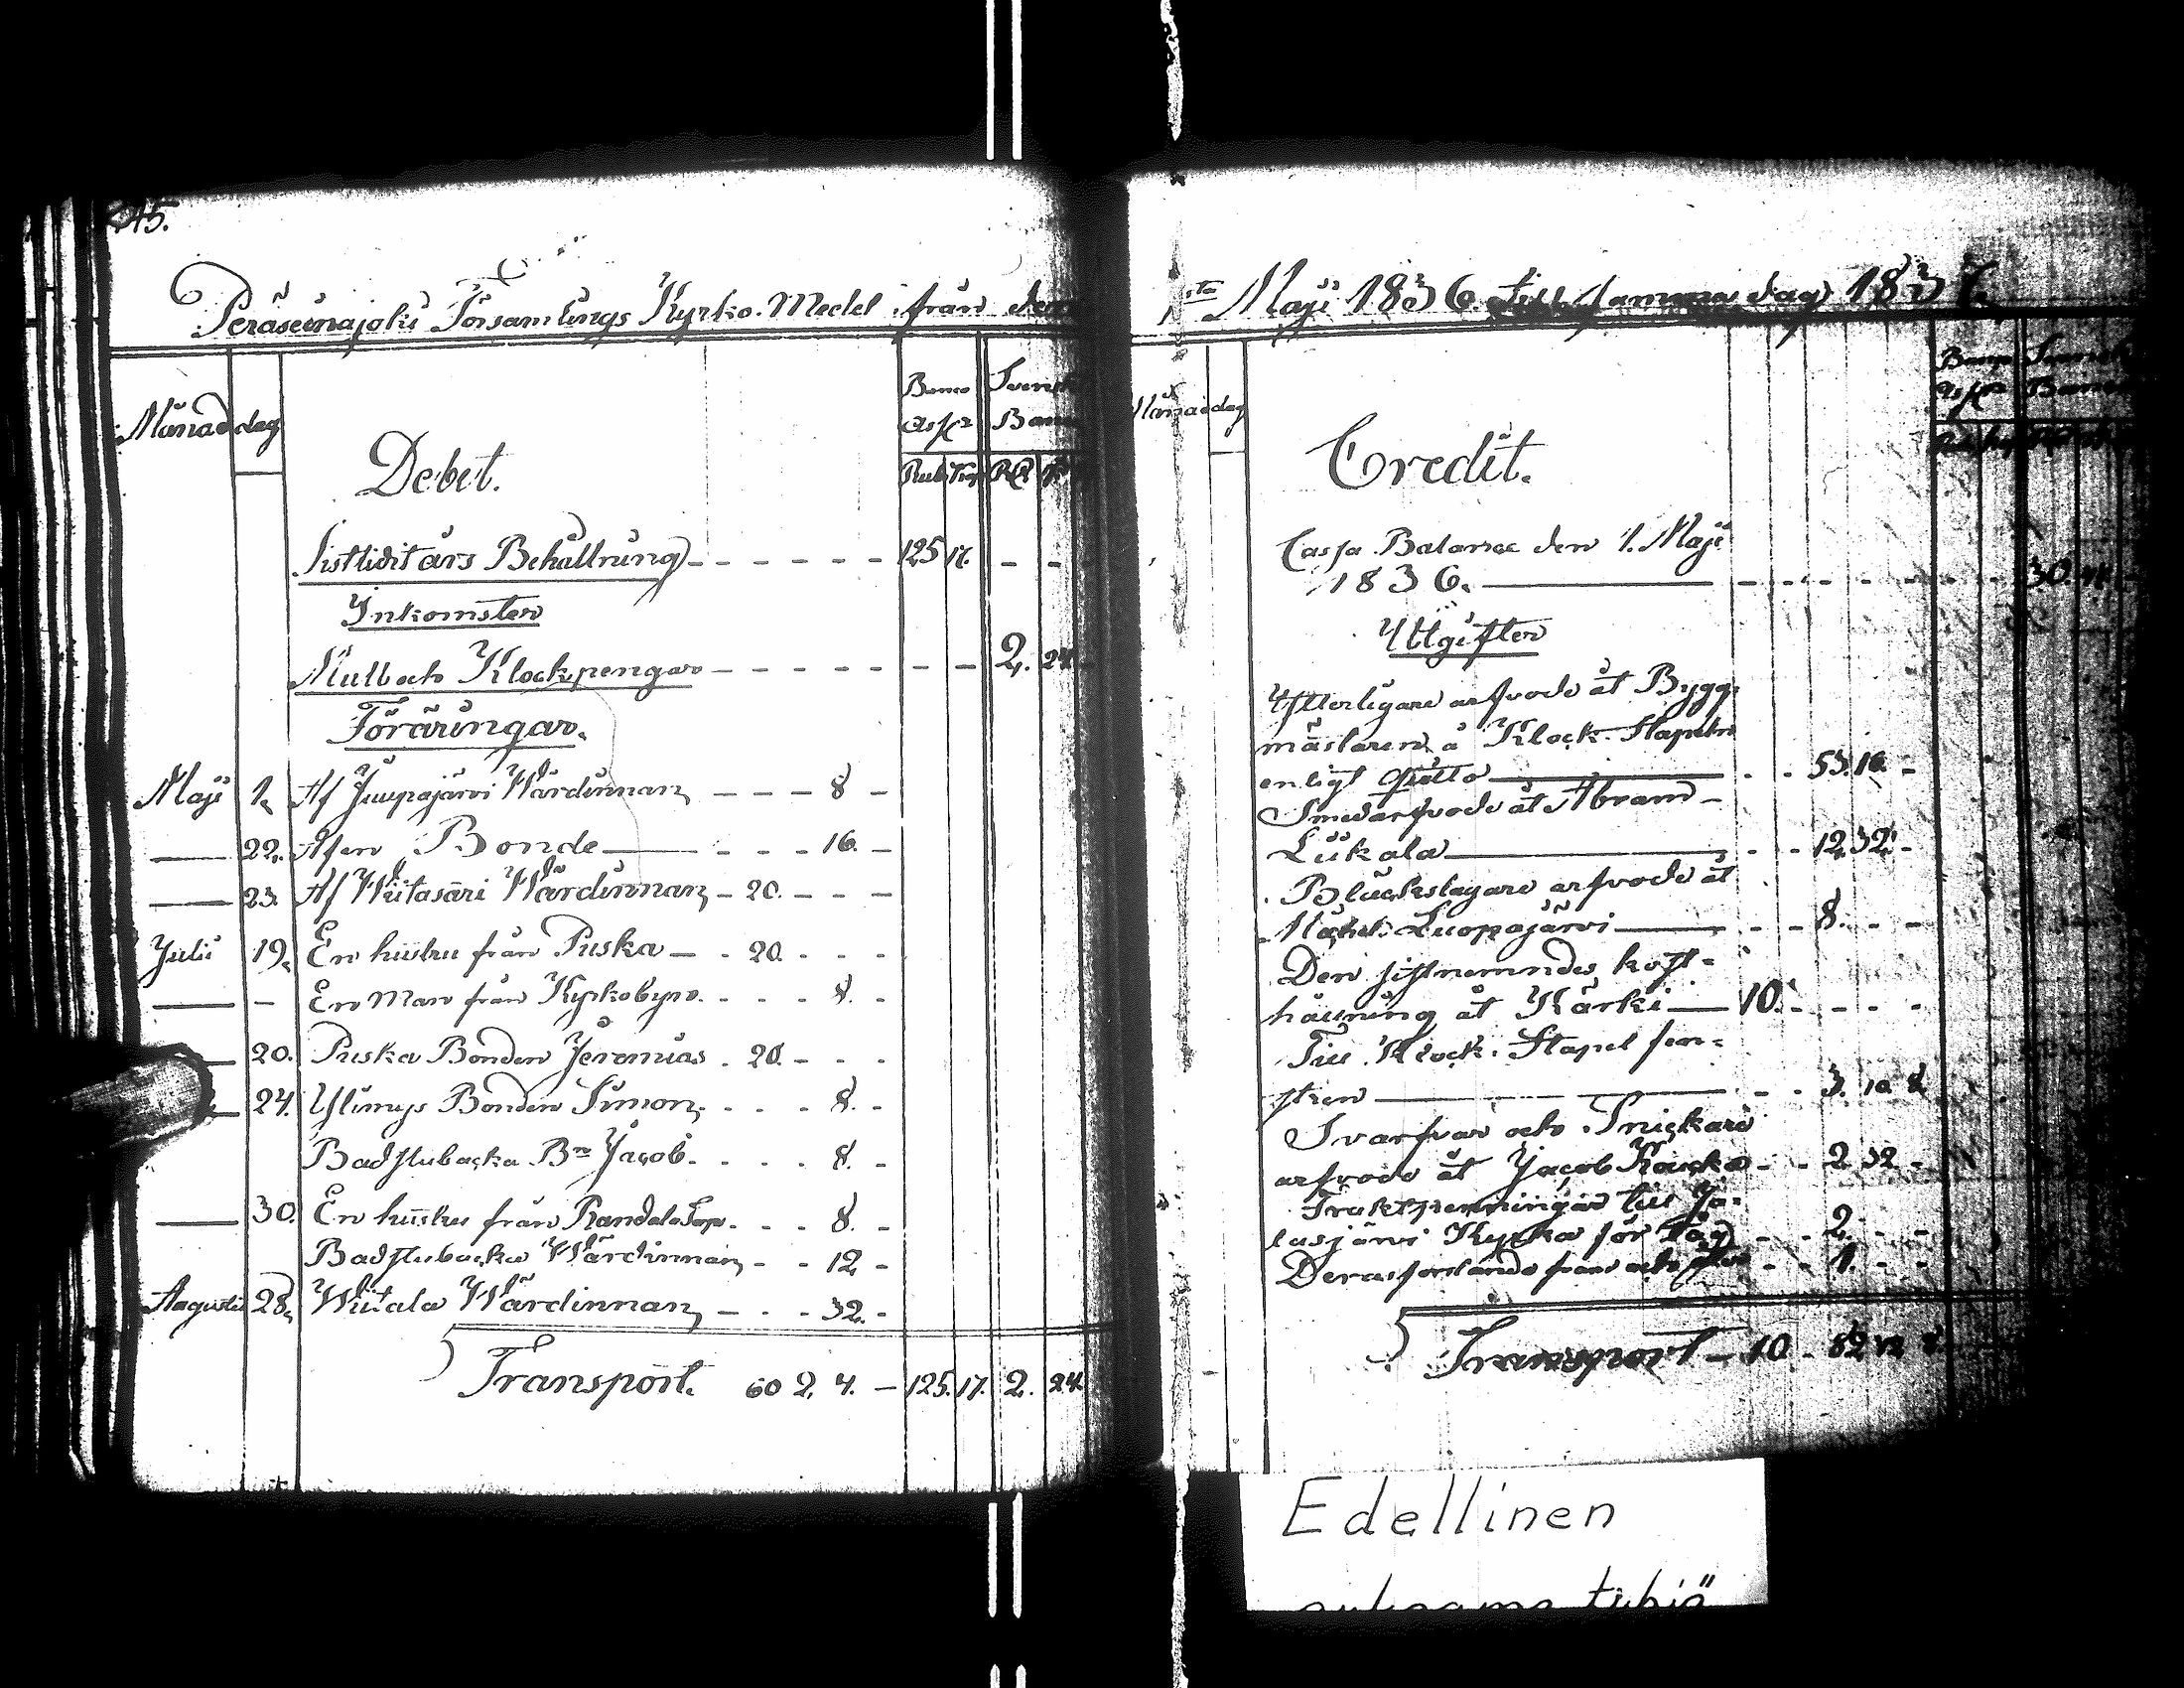 45.
Peräseinajoki Församlings Kyrko-Medel från den
1sta Maji 1836 till samma dag 1837
Månad dag
Banco
Assr
Svensk
Banco
Rub. Kop. RD
Debet.
Sistledit års Behållning - - - - - 125 17. - -
Inkomster
Mull och Klockpengar - - - - - - - 2. 24. -
Föräringar.
Maji 1. Af Juupajärvi Wärdinnan - - - 8 -
22. Af en Bonde - - - 16. -
23. Af Wiitasari Wärdinnan - 20. - - -
Julii 19. En hustru från Puska - - 20. - - -
- En Man från Kyrkobyn. - - - 8. -
20. Puska Bonden Jeremias - 20. - - -
24. Ylinys Bonden Simon. - - - 8. -
Badstubacka Bn Jacob. - - - 8. -
30. En hustru från Randala - - - 8. -
Badstubacka Wärdinnan - - 12 -
Augusti 28. Wiitala Wärdinnan - - - 32. -
Transport. 60 2. 4. - 125. 17. 2. 24.
Månad dag
Banco
Assr
Svensk
Banco
Credit.
Cassa Balance den 1. Maji
1836. 30.
Utgifter
Ytterligare arfvode åt Bygg-
mästaren å Klock-Stapeln
enligt qvitto - - 53. 16. -
Smedarfvode åt Abram -
Liikala - - 12. 32. -
Bläckslagare arfvode åt
Michel Luopajärvi - - 8. - -
Den sistnemndes kost-
hållning åt Kärki - 10. - - - -
Till Klock-Stapel fen-
stren - - 3. 10 8
Svarfvar och Snickare
arfvode åt Jacob Kauka - - 2 32 -
Fraktpenningar till Ja-
lasjärvi Kyrka för - - 2. - -
Deras fortlando från och - - 1. - -
Transport - 10 - 82 12 8
Edellinen
aukeama tyhjä